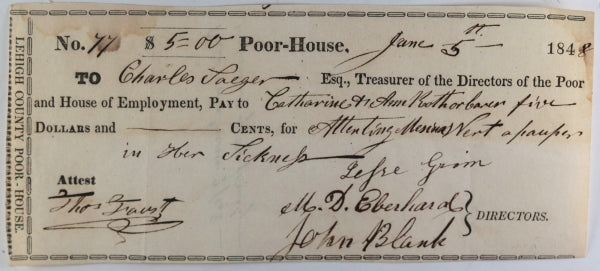 LEHIGH COUNTY POOR-HOUSE.
No. 77 $ 5-00 Poor-House, June 5th 1848
TO Charles Saeger Esq., Treasurer of the Directors of the Poor
and House of Employment, PAY to Catharine & Ann five
DOLLARS and ——— CENTS, for Attenting Vert a pauper
in Her Sickness
Jesse Grim
Attest
Thos Faust
M. D. Eberhard
DIRECTORS.
John Blank